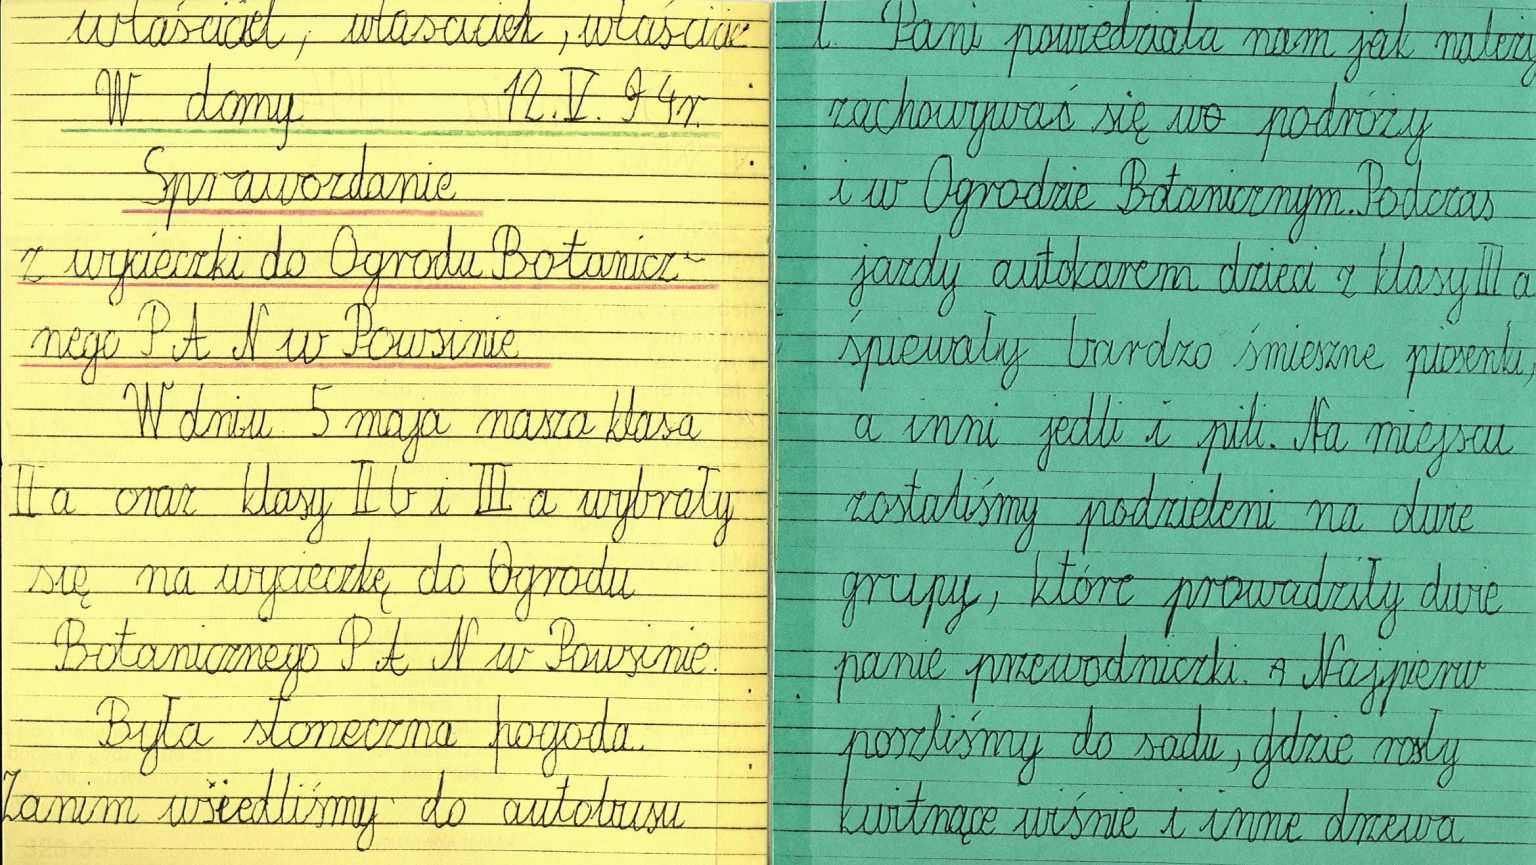 właściciel, właściciel, właściciel
W domy 12.V.94r.
Sprawozdanie
z wycieczki do Ogrodu Botanicz-
nego PAN w Powsinie
W dniu 5 maja nasza klasa
II a oraz klasy II b i III a wybrały
się na wycieczkę do Ogrodu
Botanicznego PAN w Powsinie.
Była słoneczna pogoda.
Zanim wsiedliśmy do autobusu
Pani powiedziała nam jak należy
zachowywać się w podróży
i w Ogrodzie Botanicznym. Podczas
jazdy autokarem dzieci z klasy III a
śpiewały bardzo śmieszne piosenki,
a inni jedli i pili. Na miejscu
zostaliśmy podzieleni na dwie
grupy, które prowadziły dwie
panie przewodniczki. Najpierw
poszliśmy do sadu, gdzie rosły
kwitnące wiśnie i inne drzewa